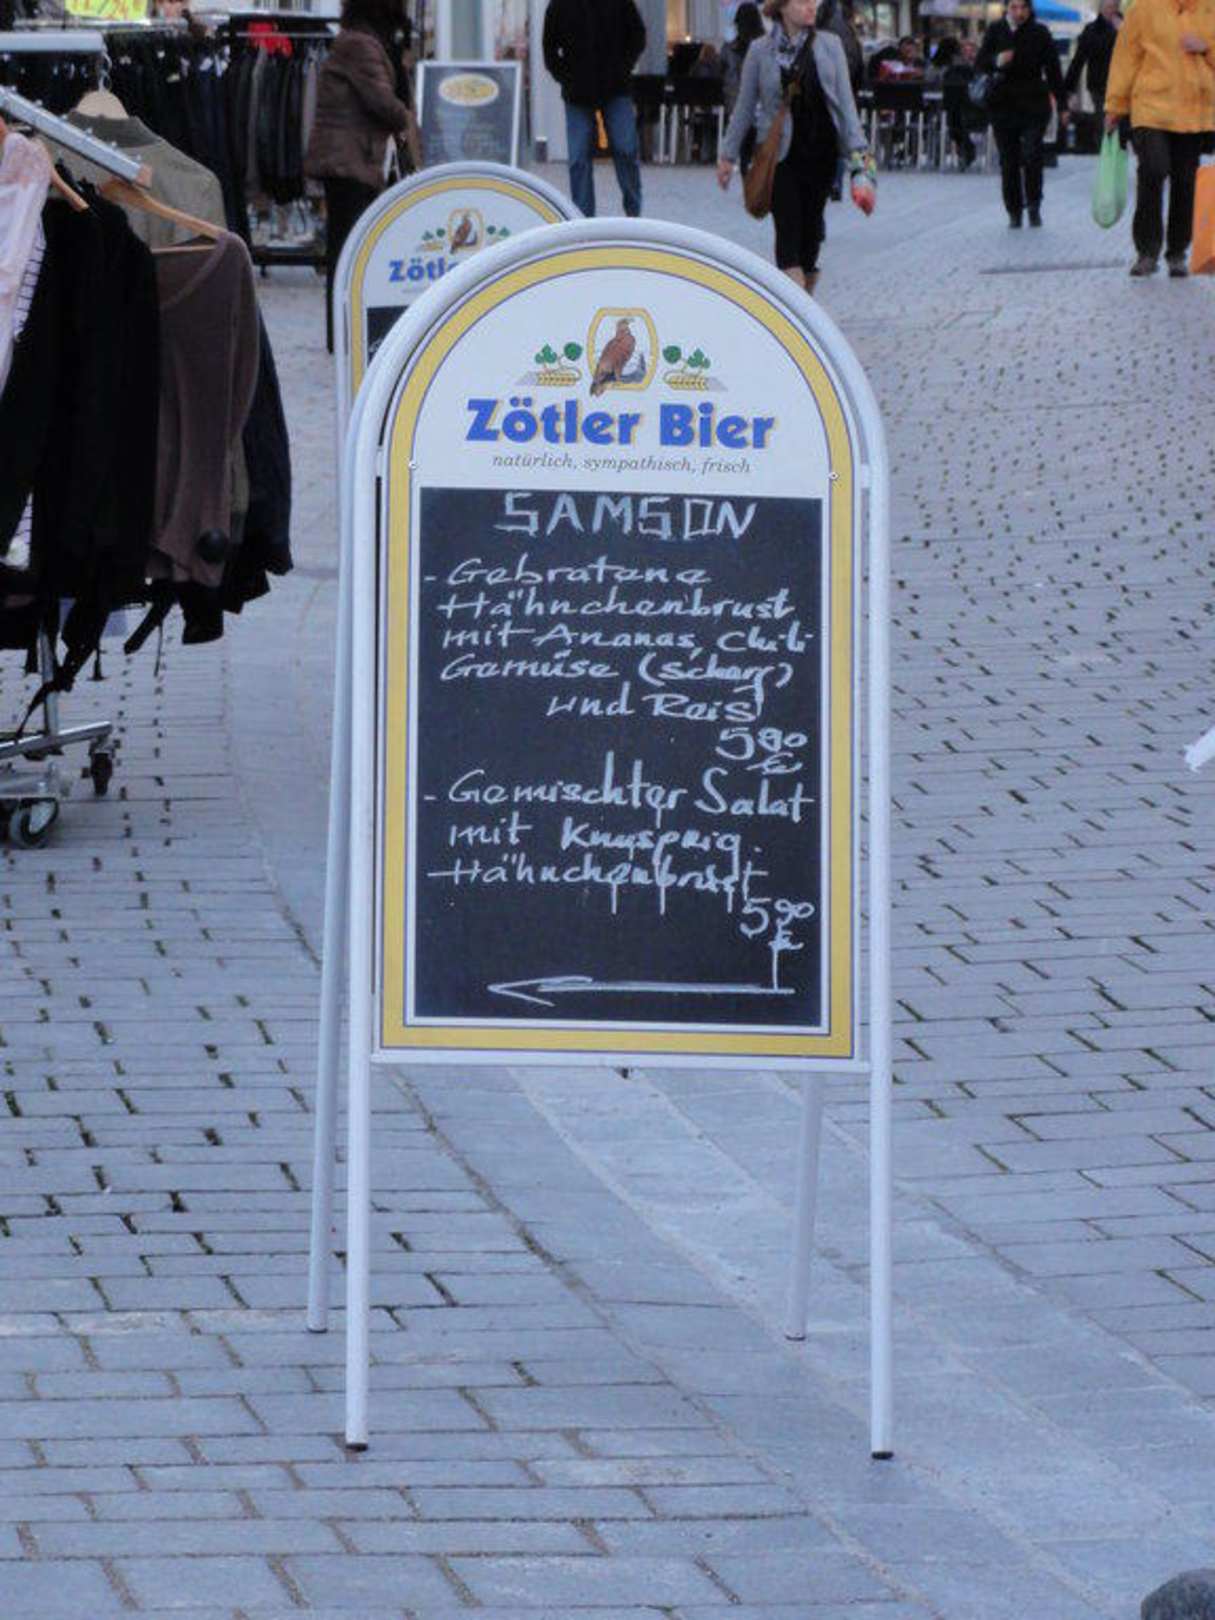 Zötl
Zötler Bier
natürlich, sympathisch, frisch
SAMSON
- Gebratene
Hähnchenbrust
mit Ananas, Chili
Gemüse (scharf)
und Reis
5,90
€
- Gemischter Salat
mit knusprig.
Hähnchenbrust
5,90
€